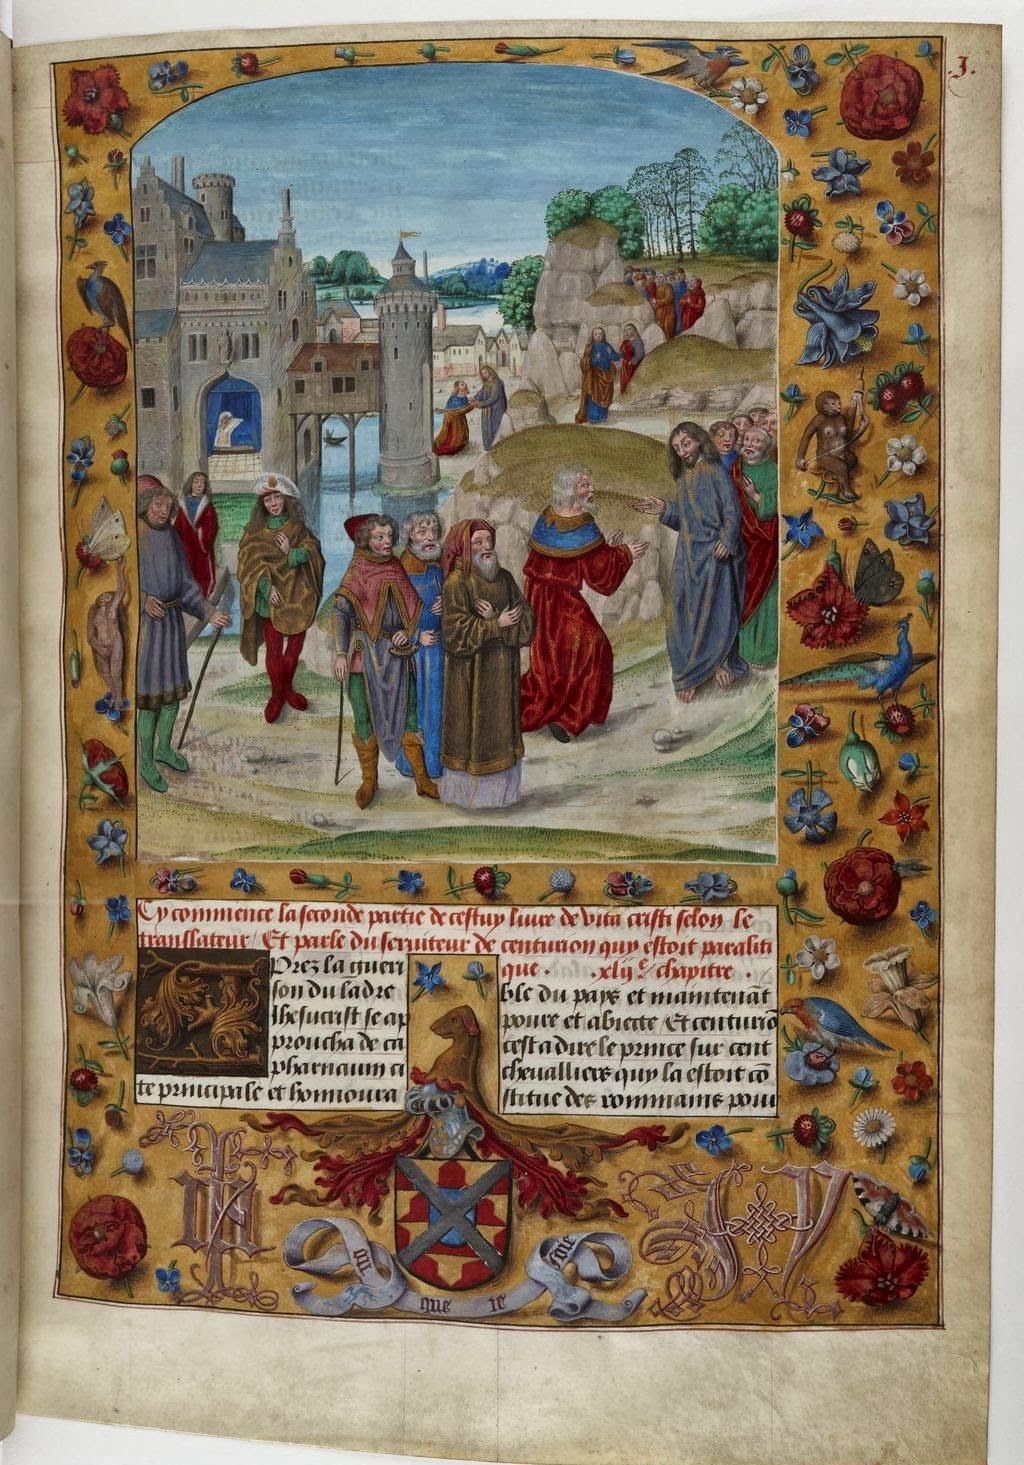 .J.
Cy commence la seconde partie de cestuy liure de vita cristi selon le
translateur / Et parle du seruiteur de centurion quy estoit paraliti
que . .xlij.e chapitre .
Aprez la gueri
son du ladre
Jhesucrist se ap
proucha de ca
pharnaum ci
te principale et honnoura
ble du pays et maintenāt
poure et abiecte Et centuriō
cest a dire le prince sur cent
cheualliers quy la estoit cō
stitue des rommains pour
ou
que ie
soie